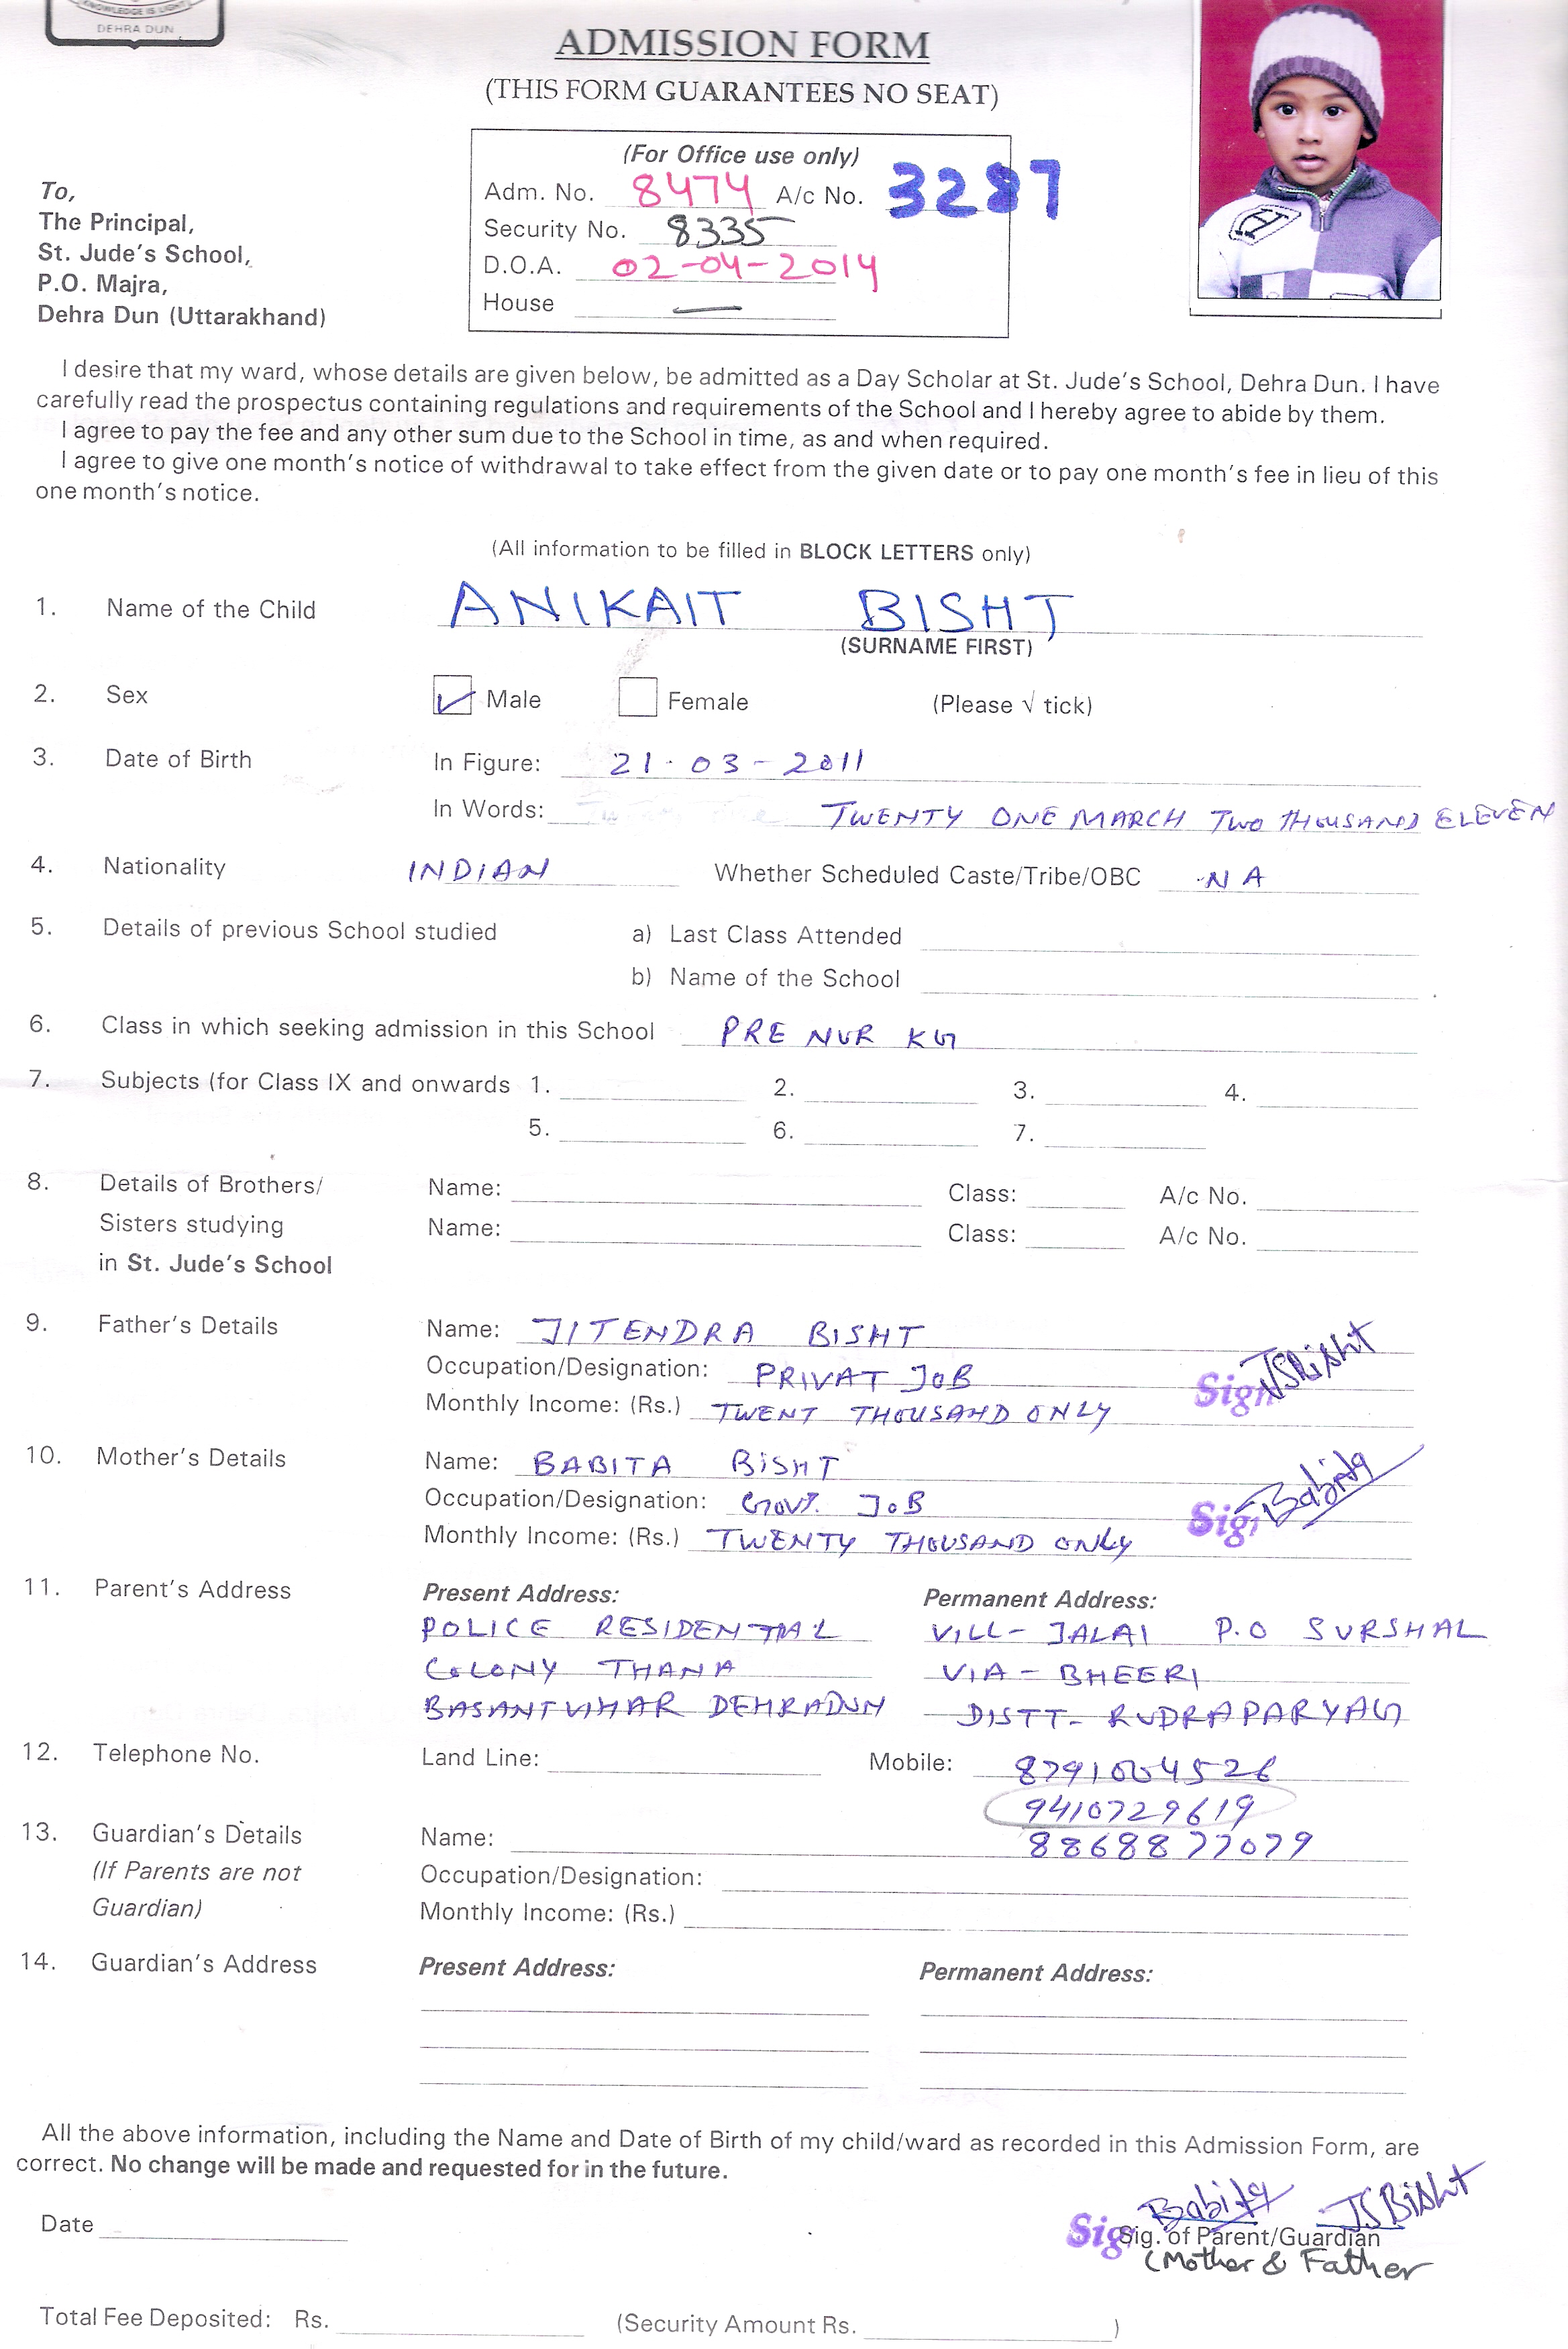 KNOWLEDGE IS LIGHT
DEHRA DUN
ADMISSION FORM
(THIS FORM GUARANTEES NO SEAT)
(For Office use only)
Adm. No. 8474 A/c No. 3287
Security No. 8335
D.O.A. 02-04-2014
House —
To,
The Principal,
St. Jude's School,
P.O. Majra,
Dehra Dun (Uttarakhand)
I desire that my ward, whose details are given below, be admitted as a Day Scholar at St. Jude's School, Dehra Dun. I have
carefully read the prospectus containing regulations and requirements of the School and I hereby agree to abide by them.
I agree to pay the fee and any other sum due to the School in time, as and when required.
I agree to give one month's notice of withdrawal to take effect from the given date or to pay one month's fee in lieu of this
one month's notice.
(All information to be filled in BLOCK LETTERS only)
1. Name of the Child ANIKAIT BISHT
(SURNAME FIRST)
2. Sex ✓ Male Female (Please √ tick)
3. Date of Birth In Figure: 21-03-2011
In Words: TWENTY ONE MARCH TWO THOUSAND ELEVEN
4. Nationality INDIAN Whether Scheduled Caste/Tribe/OBC NA
5. Details of previous School studied a) Last Class Attended
b) Name of the School
6. Class in which seeking admission in this School PRE NUR KG
7. Subjects (for Class IX and onwards 1. 2. 3. 4.
5. 6. 7.
8. Details of Brothers/ Name: Class: A/c No.
Sisters studying Name: Class: A/c No.
in St. Jude's School
9. Father's Details Name: JITENDRA BISHT
Occupation/Designation: PRIVAT JOB Sign JSBisht
Monthly Income: (Rs.) TWENT THOUSAND ONLY
10. Mother's Details Name: BABITA BISHT
Occupation/Designation: GOVT. JOB Sig Babita
Monthly Income: (Rs.) TWENTY THOUSAND ONLY
11. Parent's Address Present Address: Permanent Address:
POLICE RESIDENTIAL VILL- JALAI P.O SURSHAL
COLONY THANA VIA - BHEERI
BASANTVIHAR DEHRADUN DISTT- RUDRAPARYAG
12. Telephone No. Land Line: Mobile: 8791004526
9410729619
13. Guardian's Details Name: 8868877079
(If Parents are not Occupation/Designation:
Guardian) Monthly Income: (Rs.)
14. Guardian's Address Present Address: Permanent Address:
All the above information, including the Name and Date of Birth of my child/ward as recorded in this Admission Form, are
correct. No change will be made and requested for in the future.
Babita JSBisht
Date Sig Sig. of Parent/Guardian
(Mother & Father
Total Fee Deposited: Rs. (Security Amount Rs. )